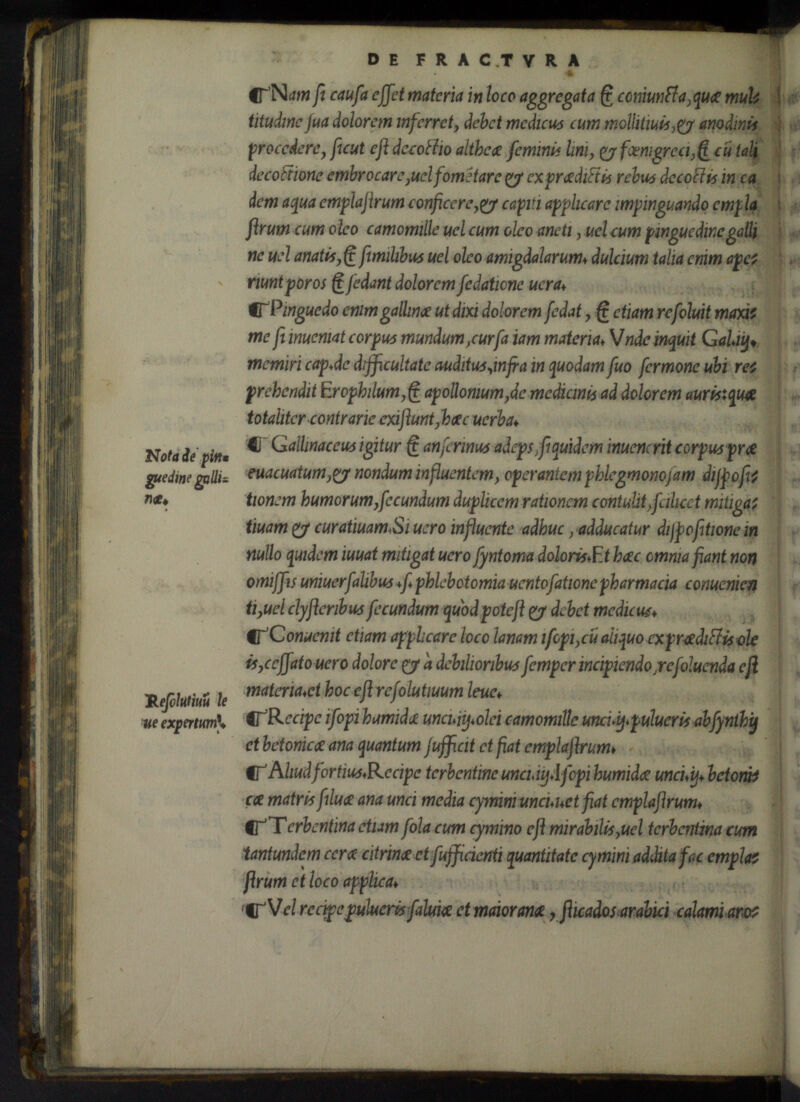 DE FRACTVRA
❡ Nam ſi cauſa eſſet materia in loco aggregata & coniuncta, quæ mul⸗
titudine ſua dolorem inferret, debet medicus cum mollitiuis, & anodinis
procedere, ſicut eſt decoctio altheæ ſeminis lini, & fœnigreci, & cū tali
decoctione embrocare, uel fomētare & ex prædictis rebus decoctis in ea
dem aqua emplaſtrum conficere, & capiti applicare impinguando empla
ſtrum cum oleo camomille uel cum oleo aneti, uel cum pinguedine galli
ne uel anatis, & ſimilibus uel oleo amigdalarum. dulcium talia enim ape⸗
riunt poros & ſedant dolorem ſedatione uera.
❡ Pinguedo enim gallinæ ut dixi dolorem ſedat, & etiam reſoluit maxi⸗
me ſi inueniat corpus mundum, curſa iam materia. Vnde inquit Gal.iij.
memiri cap.de difficultate auditus, infra in quodam ſuo ſermone ubi re⸗
prehendit Erophilum, & apollonium, de medicinis ad dolorem auris: quæ
totaliter contrarie exiſtunt, hæc uerba.
Nota de pin⸗
guedine galli⸗
næ.
❡ Gallinaceus igitur & anſerinus adeps, ſiquidem inuenerit corpus præ
euacuatum, & nondum influentem, operantem phlegmonoſam diſpoſi⸗
tionem humorum, ſecundum duplicem rationem contulit, ſcilicet mitiga⸗
tiuam & curatiuam. Si uero influente adhuc, adducatur diſpoſitione in
nullo quidem iuuat mitigat uero ſyntoma doloris. Et hæc omnia fiant non
omiſſis uniuerſalibus .ſ. phlebotomia uentoſatione pharmacia conuenien
ti, uel clyſteribus ſecundum quod poteſt & debet medicus.
❡ Conuenit etiam applicare loco lanam iſopi, cū aliquo ex prædictis ole
is, ceſſato uero dolore & a debilioribus ſemper incipiendo, reſoluenda eſt
Reſolutiuū le
ue expertum.
materia. et hoc eſt reſolutiuum leue.
❡ Recipe iſopi humidæ unci.iij. olei camomille unci.ij. pulueris abſynthij
et betonicæ ana quantum ſufficit et fiat emplaſtrum.
❡ Aliud fortius. Recipe terbentine unci.iij. Iſopi humidæ unci.ij. betoni⸗
cæ matris ſiluæ ana unci media cymini unci.u. et fiat emplaſtrum.
❡ Terbentina etiam ſola cum cymino eſt mirabilis, uel terbentina cum
tantundem ceræ citrinæ et ſufficienti quantitate cymini addita fac empla⸗
ſtrum et loco applica.
❡ Vel recipe pulueris ſaluiæ et maioranæ, ſticados arabici calami aro⸗